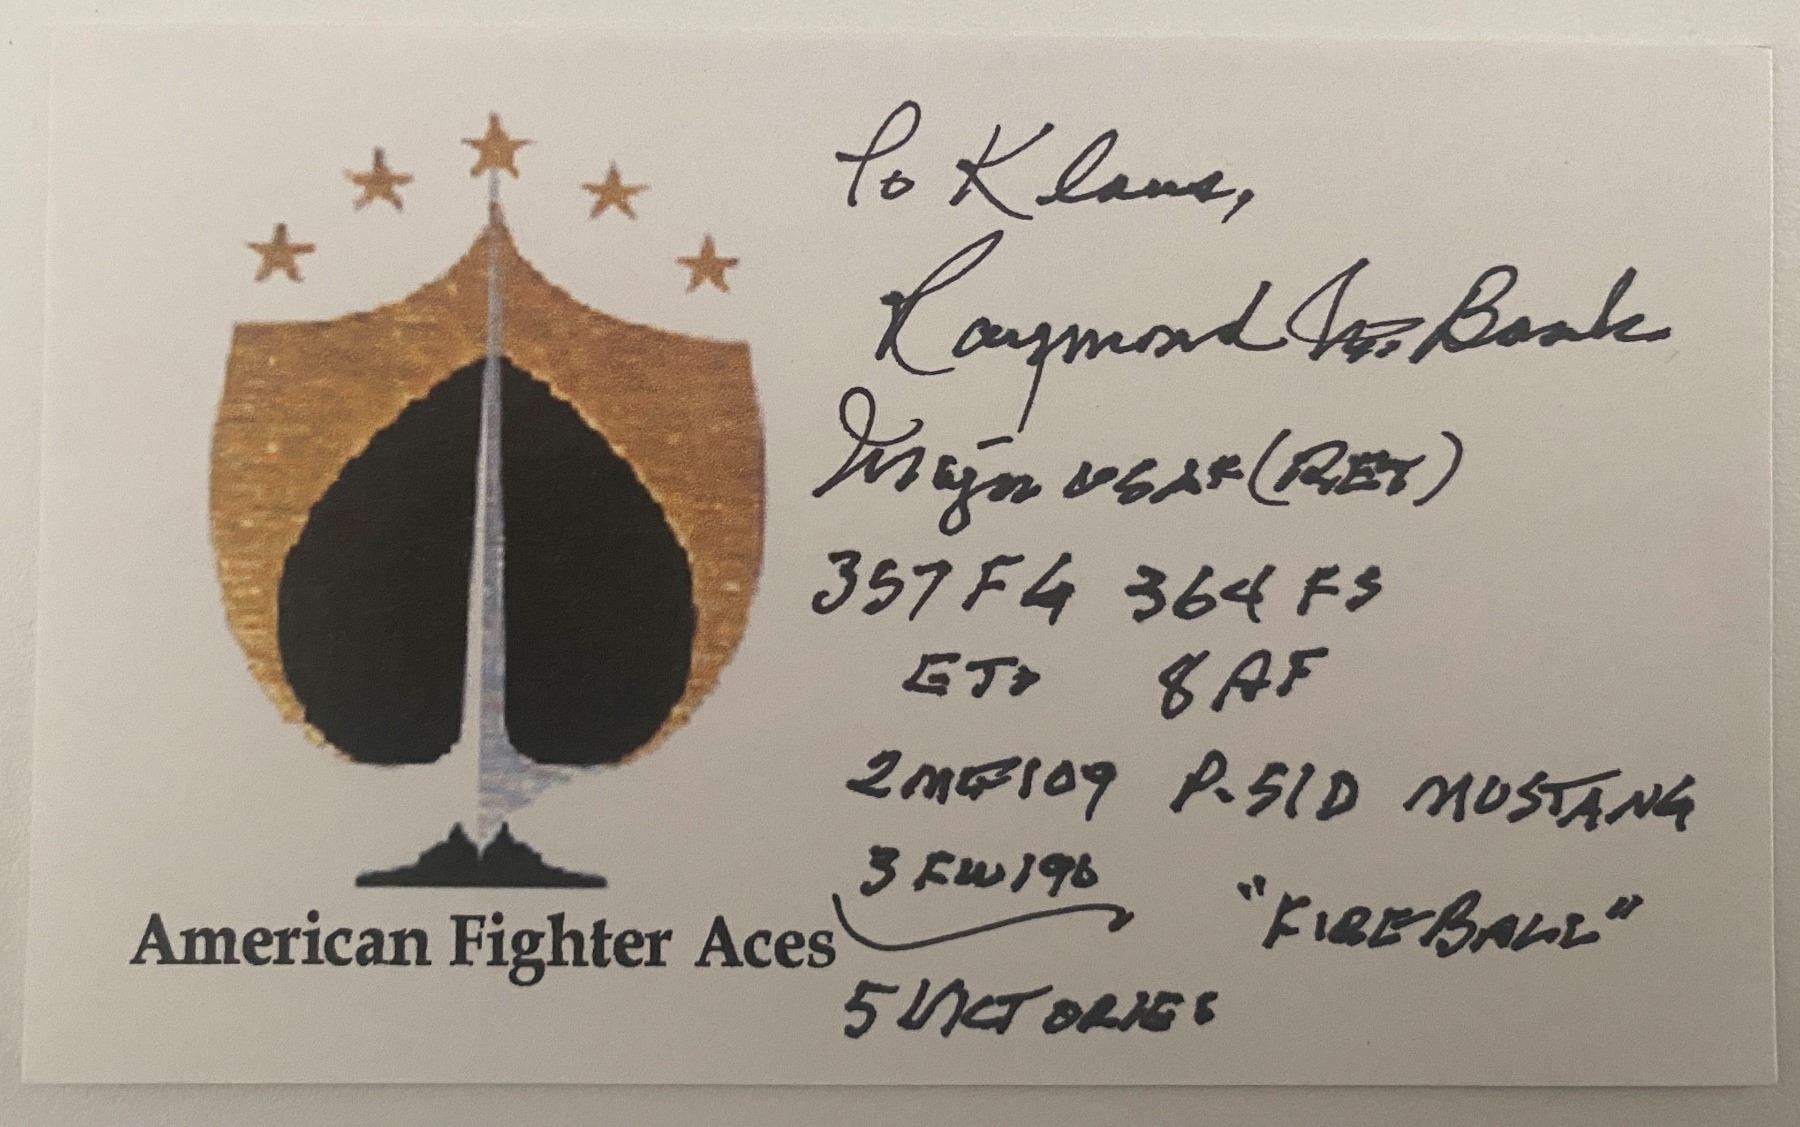 To Klaus,
Raymond M. Bank
Major USAF (RET)
357 FG 364 FS
ETO 8 AF
2 ME109 P-51D MUSTANG
3 FW190 "FIREBALL"
5 VICTORIES
American Fighter Aces